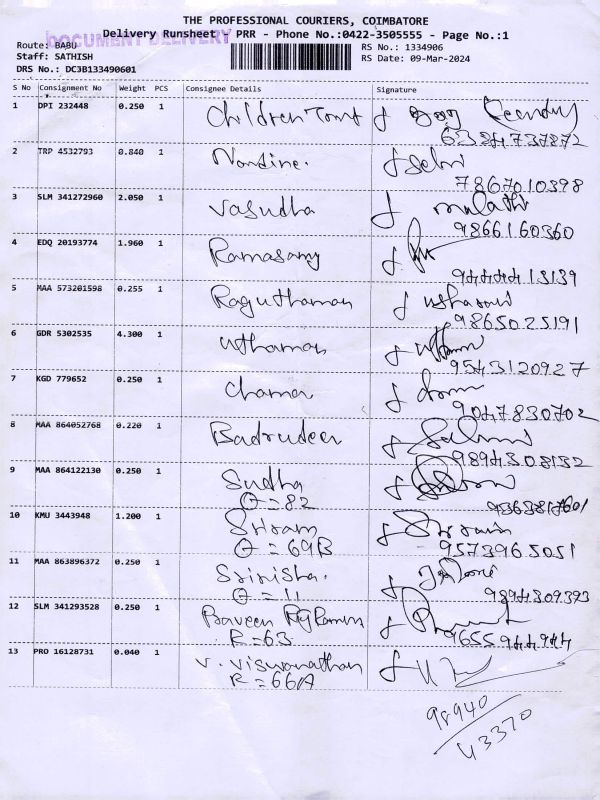 THE PROFESSIONAL COURIERS, COIMBATORE
DOCUMENT DELIVERY
Delivery Runsheet PRR - Phone No.:0422-3505555 - Page No.:1
Route: BABU RS No.: 1334906
Staff: SATHISH RS Date: 09-Mar-2024
DRS No.: DCJB133490601
S No Consignment No Weight PCS Consignee Details Signature
1 DPI 232448 0.250 1 Children
6384737872
2 TRP 4532793 0.840 1 Nandine. Selvi
7867010398
3 SLM 341272960 2.050 1 Vasudha malathi
9866160360
4 EDQ 20193774 1.960 1 Ramasamy
9444413139
5 MAA 573201598 0.255 1 Raguthaman usharani
9865025191
6 GDR 5302535 4.300 1 uthaman
9543120927
7 KGD 779652 0.250 1
9047830702
8 MAA 864052768 0.220 1 Badrudeen
9894308132
9 MAA 864122130 0.250 1 Sudha
= 82 9363817601
10 KMU 3443948 1.200 1 Sriram Sriram
= 69B 9573965051
11 MAA 863896372 0.250 1 Srinisha.
= 11 9894309393
12 SLM 341293528 0.250 1 Praveen
R = 63 9655944944
13 PRO 16128731 0.040 1 V. Viswanathan
R = 66A
98940
43370